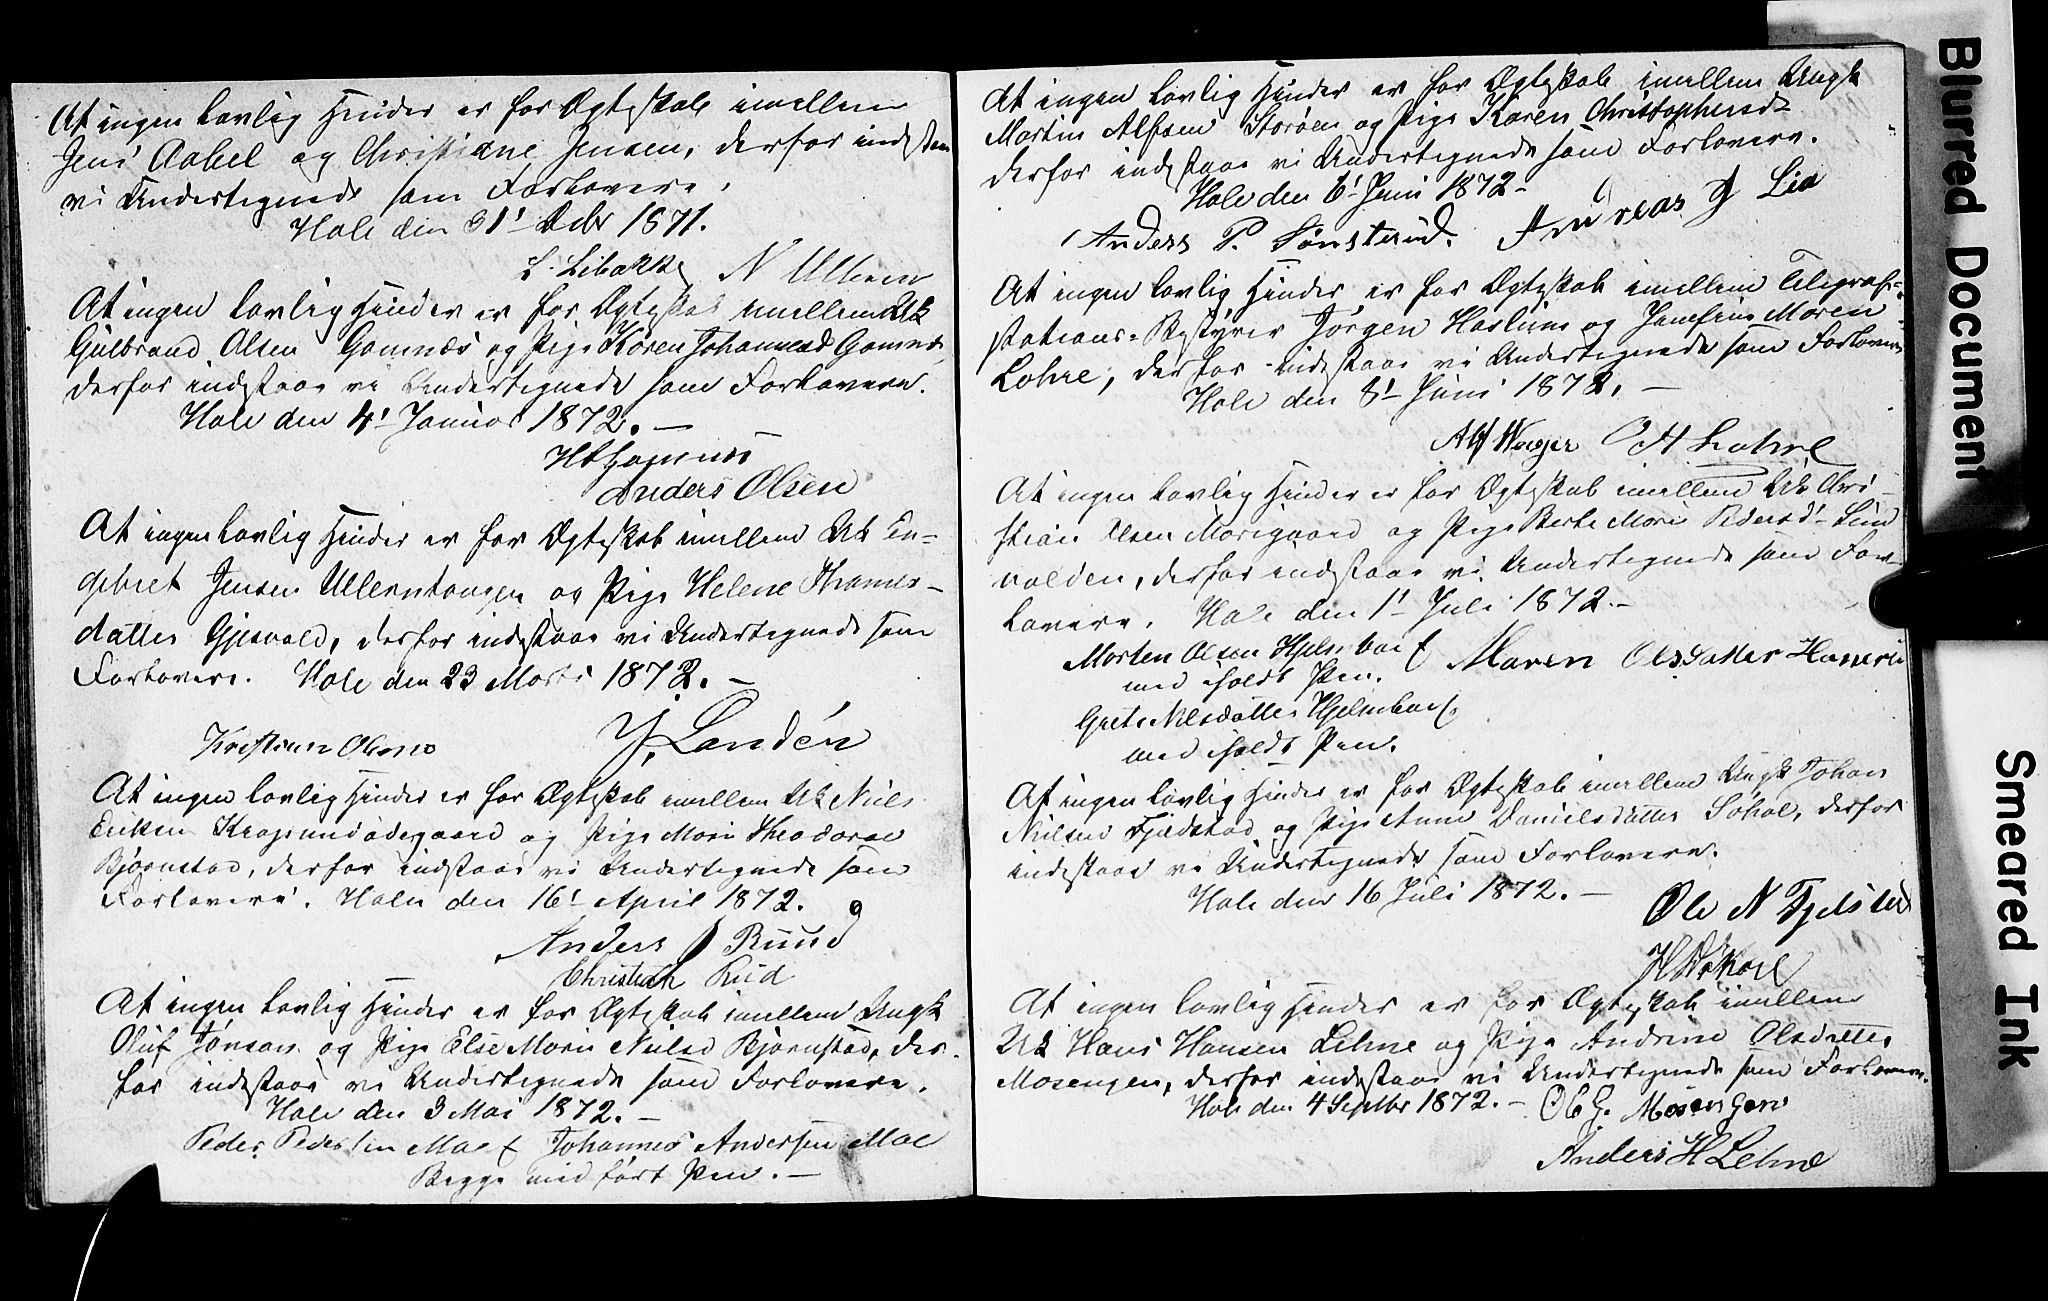 At ingen lovlig Hinder er for Ægteskab imellem
Jens Aabel og Christiane Jensen, derfor indestaae
vi Undertegnede som Forlovere.
Hole den 31' Octbr 1871.
L. Libakke N Ullern
At ingen lovlig Hinder er for Ægteskab imellem Uk
Gulbrand Olsen Gomnæs og Pige Karen Johannesd Gomnæs,
derfor indestaae vi Undertegnede som Forlovere.
Hole den 4' Januar 1872. —
Anders Olsen
At ingen lovlig Hinder er for Ægteskab imellem Uk En=
gebret Jensen Ullerntangen og Pige Helene Thomes-
datter Gjesvold, derfor indestaae vi Undertegnede som
Forlovere. Hole den 23 Marts 1872. —
Kristian Olsen J. Landén
At ingen lovlig Hinder er for Ægteskab imellem Uk Niels
Eriksen Kragsrundødegaard og Pige Mari Theodora
Bjørnstad, derfor indestaae vi Undertegnede som
Forlovere. Hole den 16' April 1872.
Anders Ruud
Christian Rud
At ingen lovlig Hinder er for Ægteskab imellem Ungk
Oluf Jonson og Pige Else Marie Nielsd Bjørnstad, der-
for indestaae vi Undertegnede som Forlovere.
Hole den 3 Mai 1872. —
Peder Pedersen Moe & Johannes Andersen Moe
Begge med ført Pen. —
At ingen lovlig Hinder er for Ægteskab imellem Ungk
Martin Alfsen Storøen og Pige Karen Christophersd-
derfor indestaae vi Undertegnede som Forlovere.
Hole den 6' Juni 1872-
Anders P. Sønsterud. Andreas J Lia
At ingen lovlig Hinder er for Ægteskab imellem Telegraf=
stations=Bestyrer Jørgen Haslum og Josefine Maren
Lohre, derfor indestaae vi Undertegnede som Forlovere
Hole den 8' Juni 1872. —
Alf Weager O H Lohre
At ingen lovlig Hinder er for Ægteskab imellem Uk Chri-
stian Olsen Morigaard og Pige Berte Mari Pedersd'
volden, derfor indestaae vi Undertegnede som For-
lovere. Hole den 1' Juli 1872.-
Morten Olsen Hjelmboe & Maren Olsdatter
med holdt Pen.
Grete Nilsdatter Hjelmboe
med holdt Pen.
At ingen lovlig Hinder er for Ægteskab imellem Ungk Johan
Nielsen Fjeldstad og Pige Anne Danielsdatter Søhol, derfor
indestaae vi Undertegnede som Forlovere.
Hole den 16 Juli 1872. —
Ole N Fjelstad
At ingen lovlig Hinder er for Ægteskab imellem
Uk Hans Hansen Lehne og Pige Andrine Olsdatter
Mosengen, derfor indestaae vi Undertegnede som Forlovere.
Hole den 4 Septbr 1872. — Ole G. Mosengen
Anders H Lehne
Blurred Document
Smeared Ink